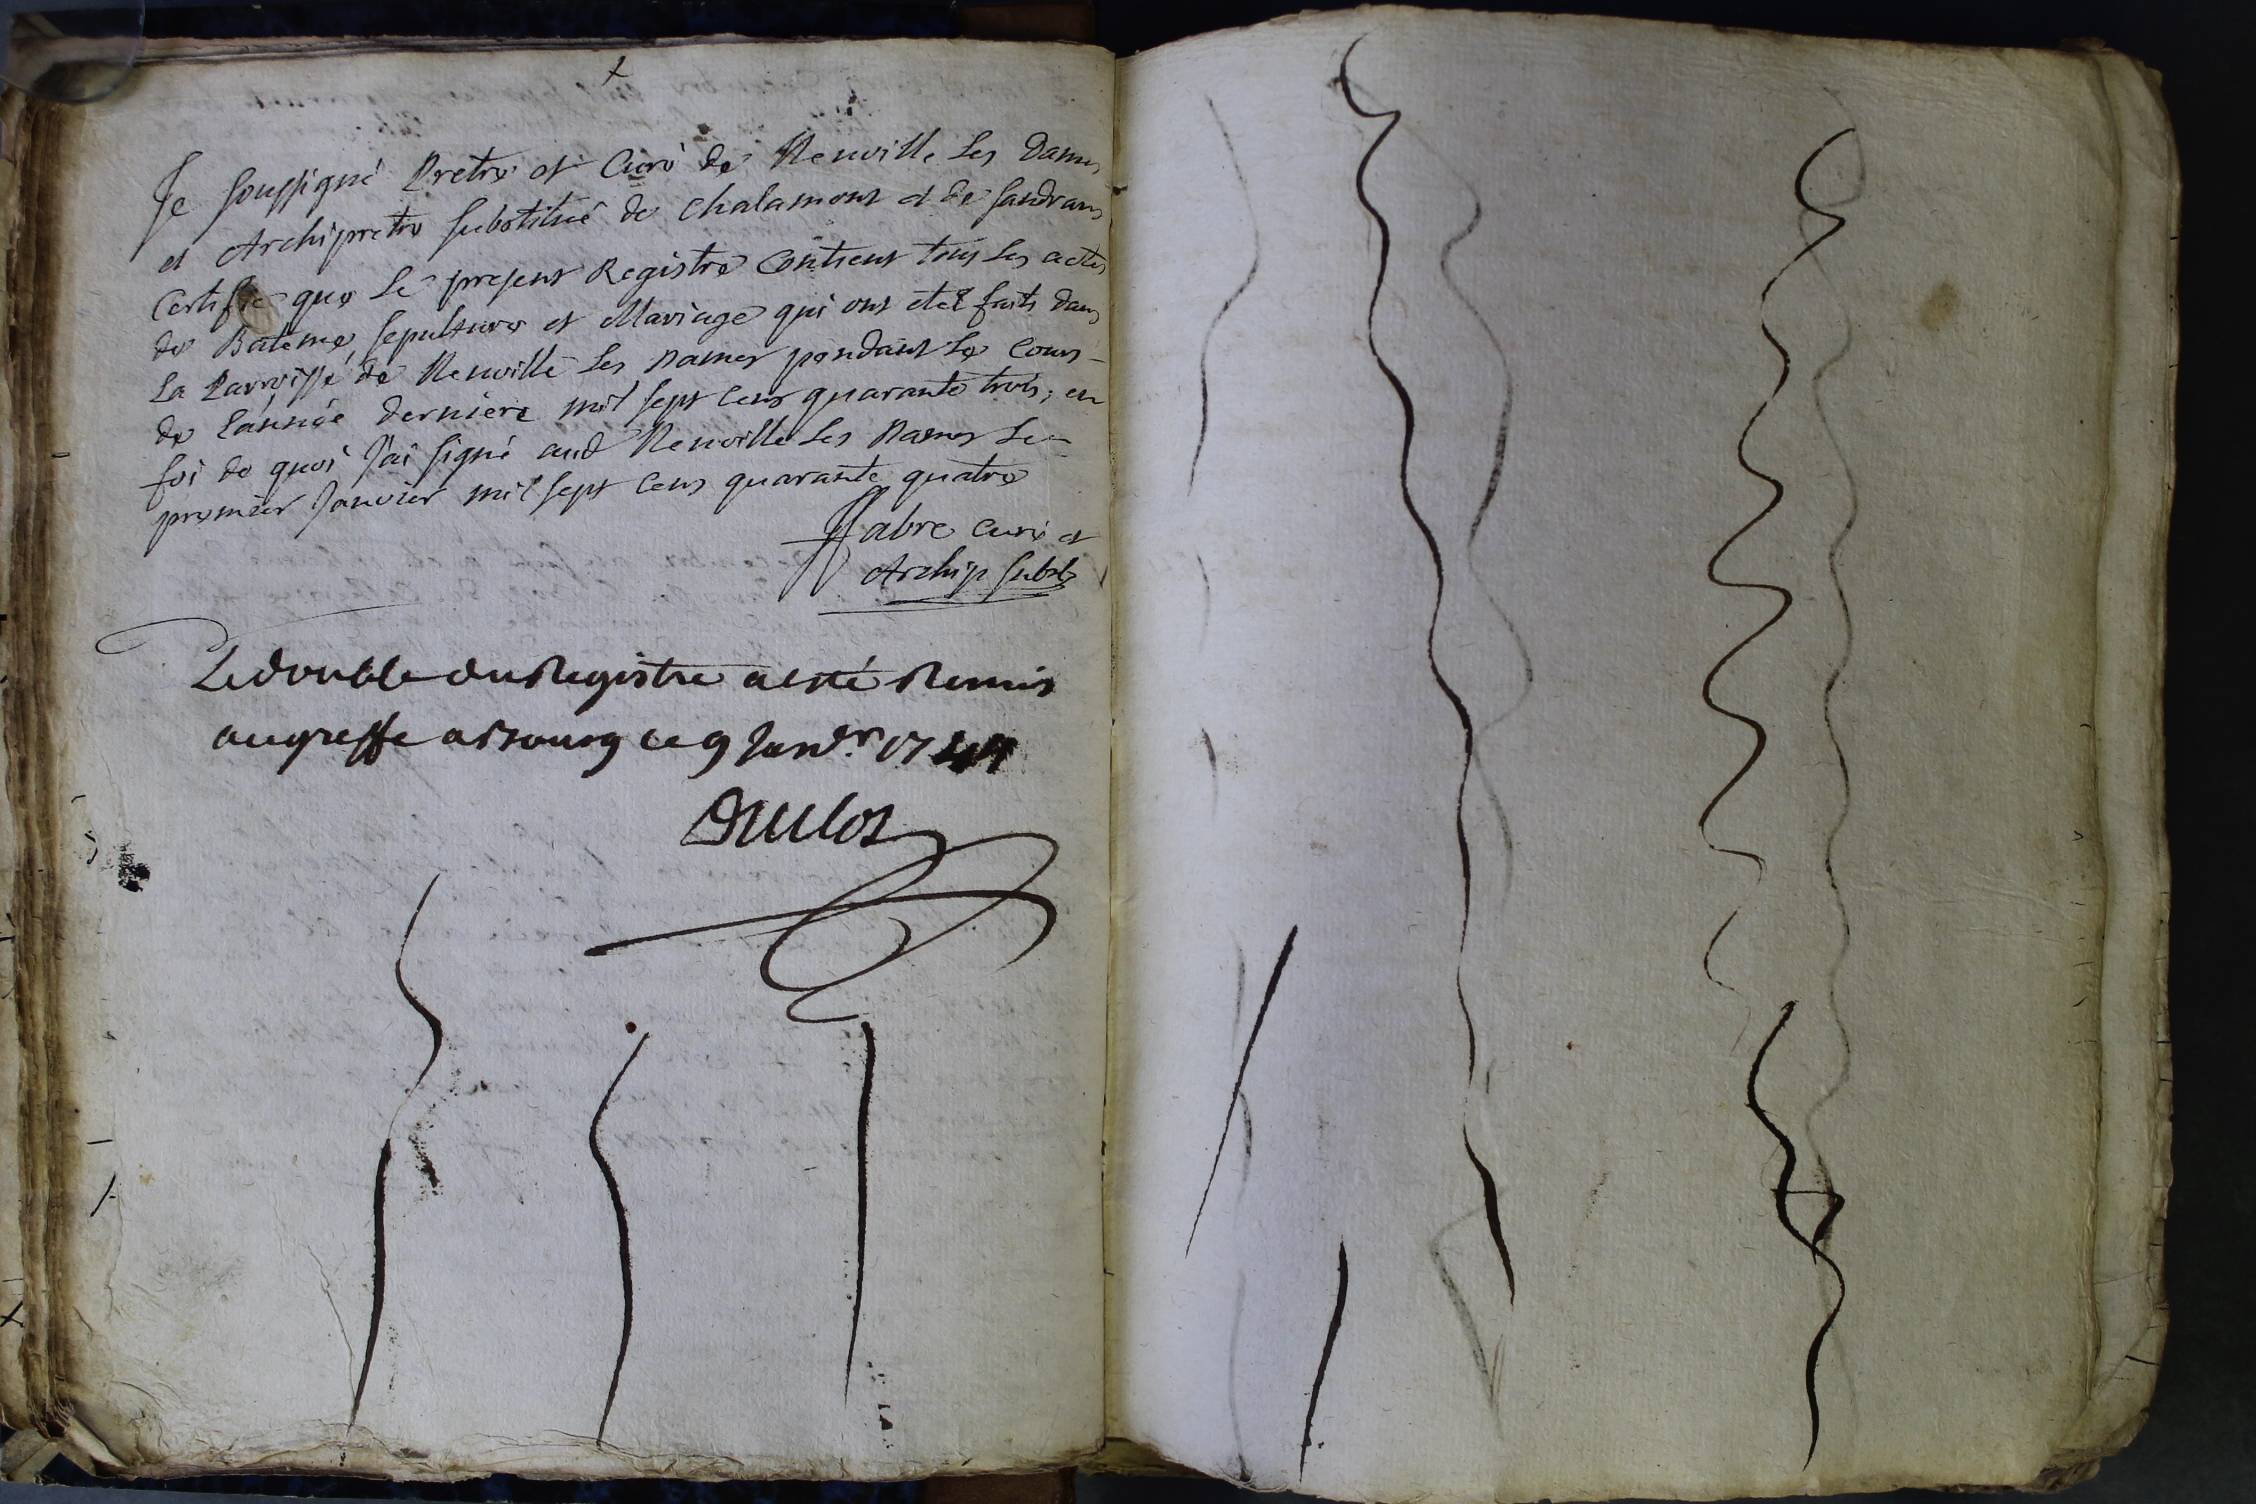 Je soussigné Pretre et Curé de Neuville Les Dames
et Archipretre substitué de chalamont et de sandrans
Certifie que Le present Registre Contient tous Les actes
de Bateme, sepulture et Mariage qui ont eté faits dans
La Parroisse de Neuville Les Dames pendant Le Cours
de L'année derniere mil sept cens quarante trois; en
foi de quoi J'ai signé aud Neuville Les Dames Le
premier Janvier mil sept cens quarante quatre
ffabre curé et
Archip subst
Le double du Registre a esté Remis
au greffe a Bourg ce 9 Janvr. 1744